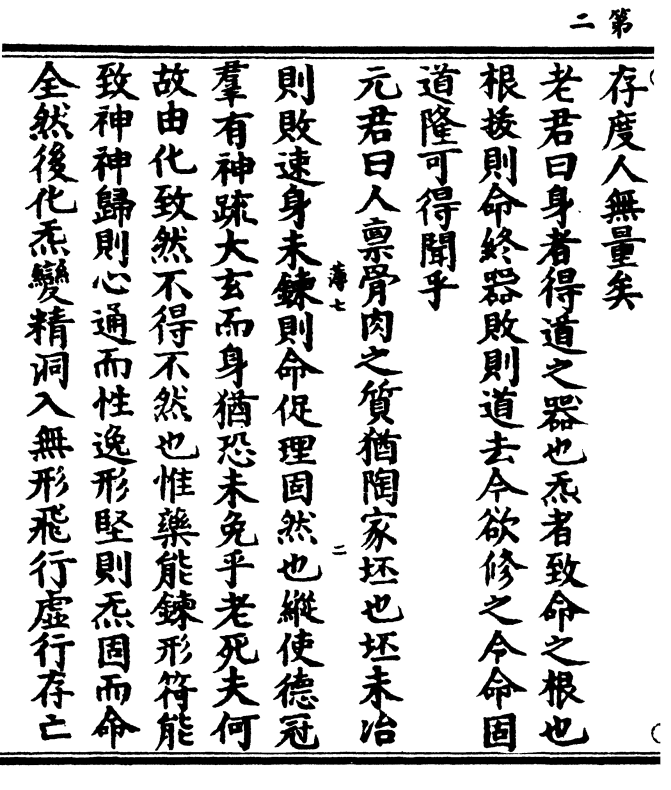 第二
存度人無量矣
老君曰身者得道之器也炁者致命之根也
根拔則命終器敗則道去今欲修之令命固
道隆可得聞乎
元君曰人禀骨肉之質猶陶家坯也坯未冶
薄七
二
則敗速身未鍊則命促理固然也縱使德冠
羣有神疏大玄而身猶恐未免乎老死夫何
故由化致然不得不然也惟藥能鍊形符能
致神神歸則心通而性逸形堅則炁固而命
全然後化炁變精洞入無形飛行虛行存亡